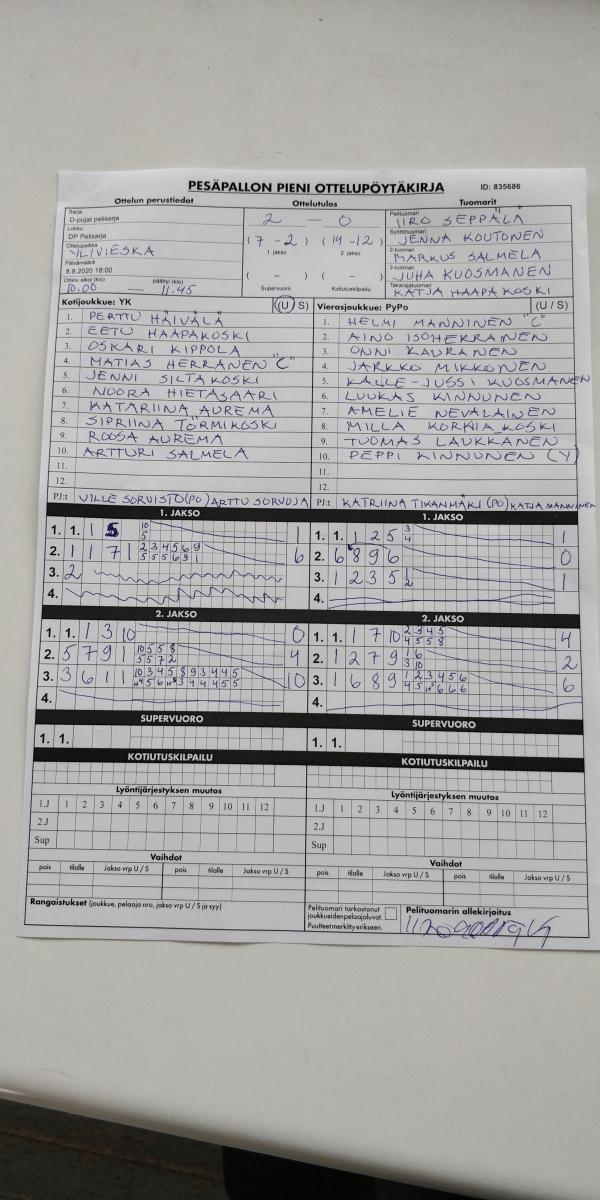 PESÄPALLON PIENI OTTELUPÖYTÄKIRJA ID: 835686
Ottelun perustiedot Ottelutulos Tuomarit
Sarja
D-pojat pelisarja
Lohko
DP Pelisarja
Ottelupaikka
YLIVIESKA
Päivämäärä
8.8.2020 18:00
Ottelu alkoi (klo) päättyi (klo)
10.00 — 11.45
2 — 0
(7 - 2) (14 - 12)
1. jakso 2. jakso
( - ) ( - )
Supervuoro Kotiutuskilpailu
Pelituomari
IIRO SEPPÄLÄ
Syöttötuomari
JENNA KOUTONEN
2-tuomari
MARKUS SALMELA
3-tuomari
JUHA KUOSMANEN
Takarajatuomari
KATJA HAAPAKOSKI
Kotijoukkue: YK (U / S)
1. PERTTU HÄIVÄLÄ
2. EETU HAAPAKOSKI
3. OSKARI KIPPOLA
4. MATIAS HERRANEN "C"
5. JENNI SILTAKOSKI
6. NOORA HIETASAARI
7. KATARIINA AUREMA
8. SIPRIINA TÖRMIKOSKI
9. ROOSA AUREMA
10. ARTTURI SALMELA
11.
12.
PJ:t VILLE SORVISTO (PO) ARTTU SORVOJA
Vierasjoukkue: PyPo (U / S)
1. HELMI MANNINEN "C"
2. AINO ISOHERRANEN
3. ONNI KAURANEN
4. JARKKO MIKKONEN
5. KALLE-JUSSI KUOSMANEN
6. LUUKAS KINNUNEN
7. AMELIE NEVALAINEN
8. MILLA KORKIAKOSKI
9. TUOMAS LAUKKANEN
10. PEPPI KINNUNEN (Y)
11.
12.
PJ:t KATRIINA TIKANMÄKI (PO) KATJA MANNINEN
1. JAKSO
1. 1. 1 5 10 5 1
2. 1 1 7 1 2 3 4 5 6 9 5 5 5 6 9 1 6
3. 2
4.
1. JAKSO
1. 1. 1 2 5 3 4 1
2. 6 8 9 6 0
3. 1 2 3 5 1 2 1
4.
2. JAKSO
1. 1. 1 3 10 0
2. 5 7 9 1 10 5 5 8 5 5 7 2 4
3. 3 6 1 1 10 3 4 5 8 9 3 4 4 5 10
4.
2. JAKSO
1. 1. 1 7 10 2 3 4 5 4 5 5 8 4
2. 1 2 7 9 1 6 3 10 2
3. 1 6 8 9 1 2 3 4 5 6 6
4.
SUPERVUORO
1. 1.
SUPERVUORO
1. 1.
KOTIUTUSKILPAILU
KOTIUTUSKILPAILU
Lyöntijärjestyksen muutos
1.J 1 2 3 4 5 6 7 8 9 10 11 12
2.J
Sup
Lyöntijärjestyksen muutos
1.J 1 2 3 4 5 6 7 8 9 10 11 12
2.J
Sup
Vaihdot
pois tilalle Jakso vrp U / S pois tilalle Jakso vrp U / S
Vaihdot
pois tilalle Jakso vrp U / S pois tilalle Jakso vrp U / S
Rangaistukset (joukkue, pelaaja nro, jakso vrp U / S ja syy)
Pelituomari tarkastanut
joukkueiden pelaajaluvat.
Puutteet merkitty erikseen.
Pelituomarin allekirjoitus